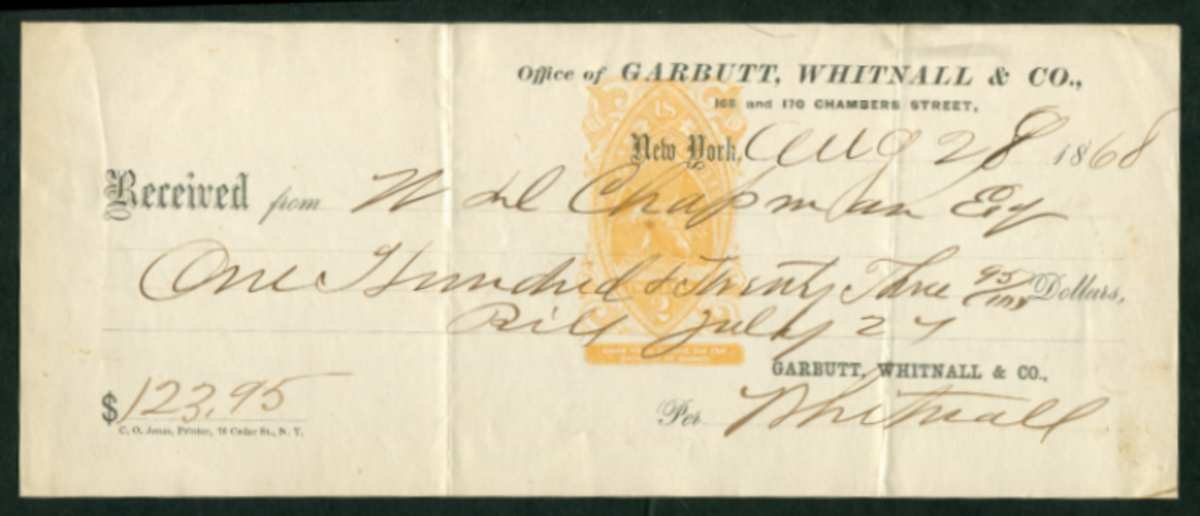 Office of GARBUTT, WHITNALL & CO.,
168 and 170 CHAMBERS STREET,
New York, Aug 28 1868
Received from W Chapman Esq
One Hundred & Twenty Three 95/100 Dollars,
Bill July 27
GARBUTT, WHITNALL & CO.,
$123.95
Per Whitnall
C. O. Jones, Printer, 76 Cedar St., N. Y.